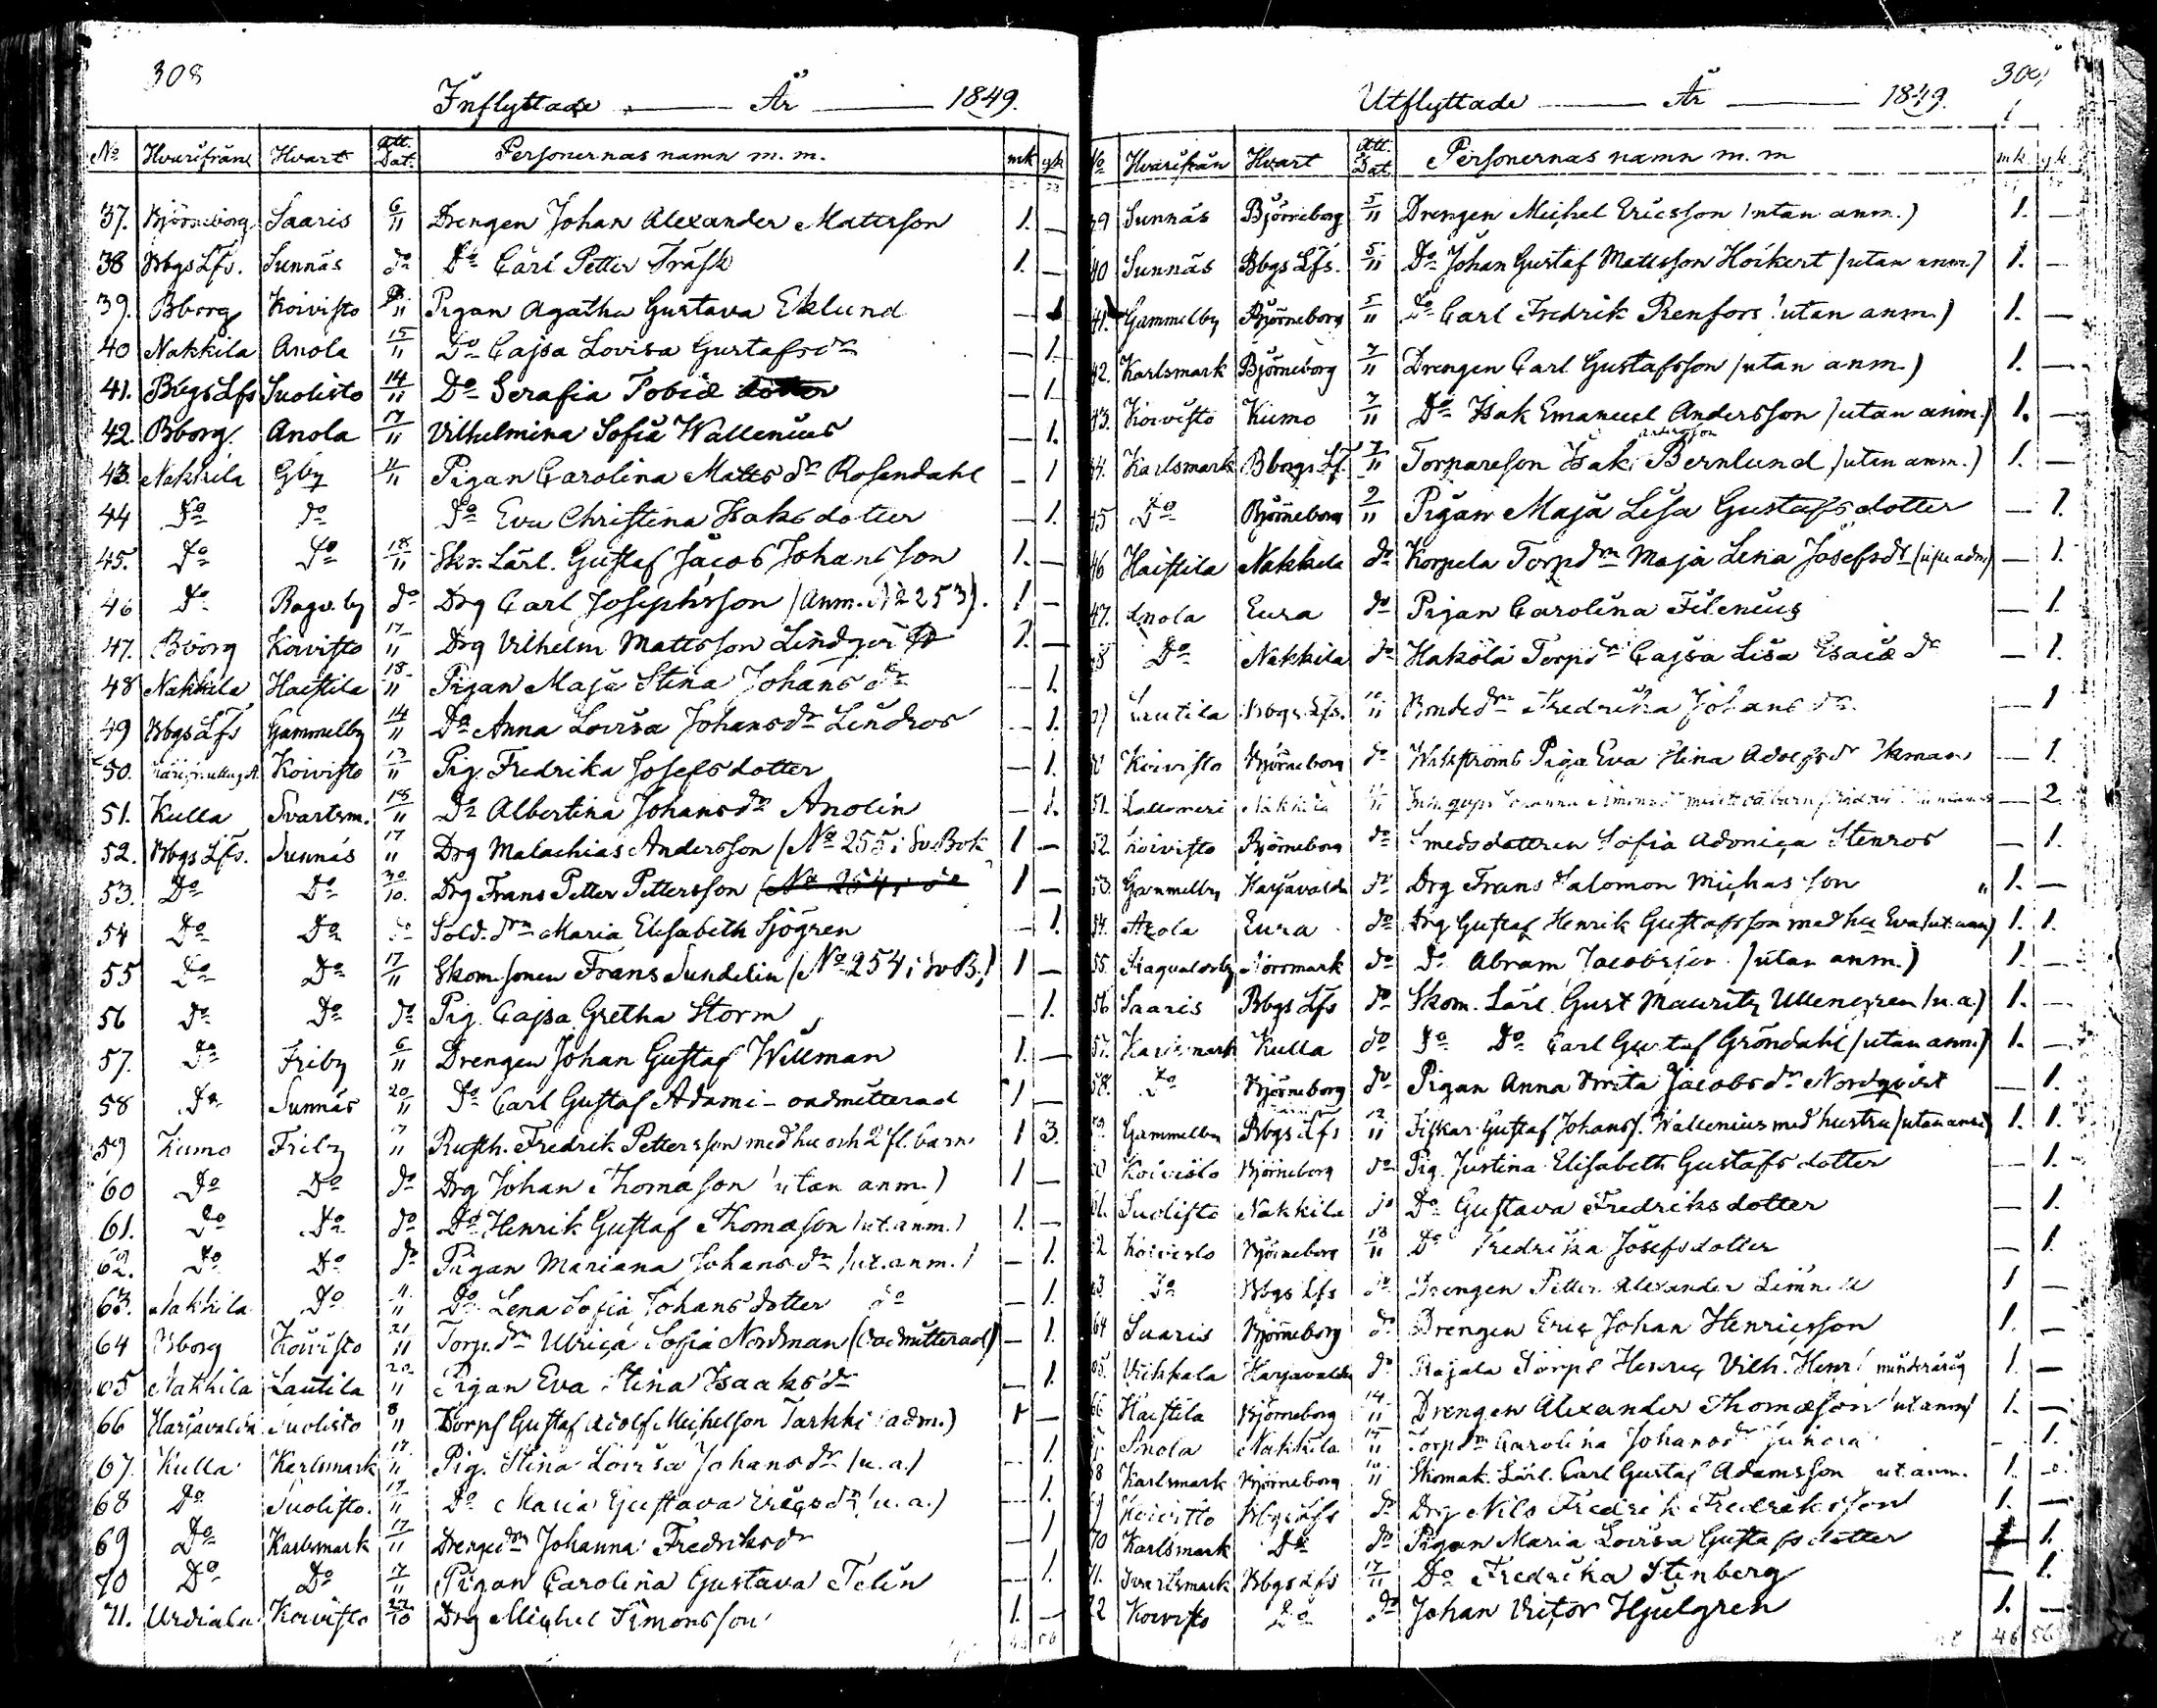 308
Inflyttade År 1849.
No Hvarifrån Hvart Att. Dat. Personernas namn m. m. mk qk
37. Björneborg Saaris 6/11 Drengen Johan Alexander Matterson 1. —
38 BbgsLfs. Sunnäs do Do Carl Petter Träsk 1. —
39. Bborg Koivisto 11 Pigan Agatha Gustava Eklund — 1
40 Nakkila Anola 15/11 Do Cajsa Lovisa Gustafsdr — 1.
41. BbgsLfs Suolisto 14/11 Do Serafia Tobiæ dotter — 1
42. Bborg. Anola 17/11 Vilhelmina Sofia Wallenius — 1.
43. Nakkila Gby 11/11 Pigan Carolina Matts dr Rosendahl — 1
44 Do do Do Eva Christina Isaksdotter — 1.
45. Do Do 18/11 Skr. Lärl. Gustaf Jacob Johansson 1. —
46 Do Ragv. by do Drg Carl Josephsson (Anm. No 2253). 1 —
47. Bborg Koivisto 17/11 Drg Vilhelm Mattsson Lindger 1. —
48 Nakkila Haistila 18/11 Pigan Maja Stina Johans dr — 1.
49 BbgsLfs Gammelby 14/11 Do Anna Lovisa Johansdr Lindros — 1.
50. Koivisto 13/11 Pig. Fredrika Josefsdotter — 1.
51. Kulla Svartsm. 18/11 Do Albertina Johansdr Anolin — 1.
52. Bbgs Lfs. Sunnäs 17/11 Drg Malachias Andersson (No 255 i Sv. Bok 1 —
53. Do Do 30/10. Drg Frans Petter Pettersson (No 254 i do 1 —
54 Do Do do Sold. drn Maria Elisabeth Sjögren — 1.
55 Do Do 17/11 Skom. sonen Frans Sundelin (No 254 i Sv B.) 1 —
56 do Do do Pig. Cajsa Gretha Storm — 1.
57. Do Friby 6/11 Drengen Johan Gustaf Willman 1. —
58 Do Sunnäs 20/11 Do Carl Gustaf Adami - oadmitterad 1 —
59 Kumo Friby 17/11 Rusth. Fredrik Pettersson med hu och 2 fl. barn 1 3.
60 Do Do do Drg Johan Thomasson (utan anm.) 1 —
61. Do Do do Do Henrik Gustaf Thomasson (ut. anm.) 1. —
62. Do Do do Pigan Mariana Johans dr (ut. anm.) — 1.
63. Nakkila Do 11/11 Do Lena Sofia Johans dotter do — 1.
64 Bborg Koivisto 21/11 Torp. drn Ulrica Sofia Nordman (Oadmitterad) — 1.
65 Nakkila Lautila 20/11 Pigan Eva Stina Isaksdr — 1.
66 Harjavalda Suolisto 8/11 Torps Gustaf Adolf Michelsson Tarkki (adm.) 1 —
67. Kulla Karlsmark 17/11 Pig. Stina Lovisa Johansdr (u. a.) — 1.
68 Do Suolisto. 17/11 Do Maria Gustava Ericsdr (u. a.) — 1.
69 Do Karlsmark 17/11 Drengedrn Johanna Fredriksdr — 1
70 Do Do 17/11 Pigan Carolina Gustava Telin — 1.
71. Urdiala Koivisto 27/10 Drg Michel Simonsson 1. —
Utflyttade År 1849.
No Hvarifrån Hvart Att. Dat. Personernas namn m. m mk. qk.
39 Sunnäs Björneborg 5/11 Drengen Michel Ericsson (utan anm.) 1. —
40 Sunnäs Bbgs Lfs. 5/11 Do Johan Gustaf Mattsson Höckert (utan anm.) 1. —
41. Gammelby Björneborg 5/11 Do Carl Fredrik Renfors (utan anm.) 1. —
42. Karlsmark Björneborg 7/11 Drengen Carl Gustafsson (utan anm.) 1. —
43. Koivisto Kumo 7/11 Do Isak Emanuel Andersson (utan anm.) 1. —
44. Karlsmark Bborgs Lf. 7/11 Torpareson Isak Andersson Bernlund (utan anm.) 1. —
45 Do Björneborg 9/11 Pigan Maja Lisa Gustafsdotter — 1.
46 Haistila Nakkila do Korpela Torpdrn Maja Lena Josefsdr — 1.
47. Anola Eura do Pigan Carolina Filenius — 1.
48 Do Nakkila do Haköla Torpdrn Cajsa Lisa Esaiæ dr — 1.
49 Lautila Bbgs Lfs. 11 Bondedrn Fredrika Johans dr — 1
50 Koivisto Björneborg do Piga Eva Stina Adolfsdr — 1.
51. Nakkila — 2.
52. Koivisto Björneborg do Smedsdottren Sofia Adonica Stenros — 1.
53. Gammelby Harjavalda do Drg Frans Salomon Michasson 1. —
54. Anola Eura do Drg Gustaf Henrik Gustafsson med hu Eva (ut. anm) 1. 1.
55. Ragvaldsby Norrmark do Do Abram Jacobsson (utan anm.) 1. —
56 Saaris Bbgs Lfs do Skom. Lärl. Gust Mauritz Ullengren (u. a.) 1. —
57. Karlsmark Kulla do Do Do Carl Gustaf Gröndahl (utan anm.) 1. —
58. Do Björneborg do Pigan Anna Brita Jacobsdr Nordqvist — 1.
59. Gammelby Bbgs Lfs 12/11 Fiskar Gustaf Johanss. Wallenius med hustru (utan anm) 1. 1.
60 Koivisto Björneborg do Pig. Justina Elisabeth Gustafsdotter — 1.
61. Suolisto Nakkila do Do Gustava Fredriksdotter — 1.
62 Koivisto Björneborg 13/11 Do Fredrika Josefsdotter — 1.
63. Do Bbgs Lfs do Drengen Petter Alexander 1 —
64 Saaris Björneborg do Drengen Eric Johan Henricsson 1. —
65. Viikkala Harjavalda do Rajala Torps Henric Vilh. Henr. minderårig 1. —
66 Haistila Björneborg 14/11 Drengen Alexander Thomasson (ut. anm) 1. —
67. Anola Nakkila 15/11 Torpdrn Carolina Johansdr — 1.
68 Karlsmark Björneborg 11 Skomak. Lärl. Carl Gustaf Adamsson ut. anm. 1. —
69 Koivisto Bbgs Lfs do Drg Nils Fredrik Fredriksson 1. —
70 Karlsmark Do do Pigan Maria Lovisa Gustafsdotter — 1.
71. Svartsmark Bbgs Lfs 17/11 Do Fredrika Stenberg — 1.
72 Koivisto Do do Johan Victor Hjulgren 1. —
46 56